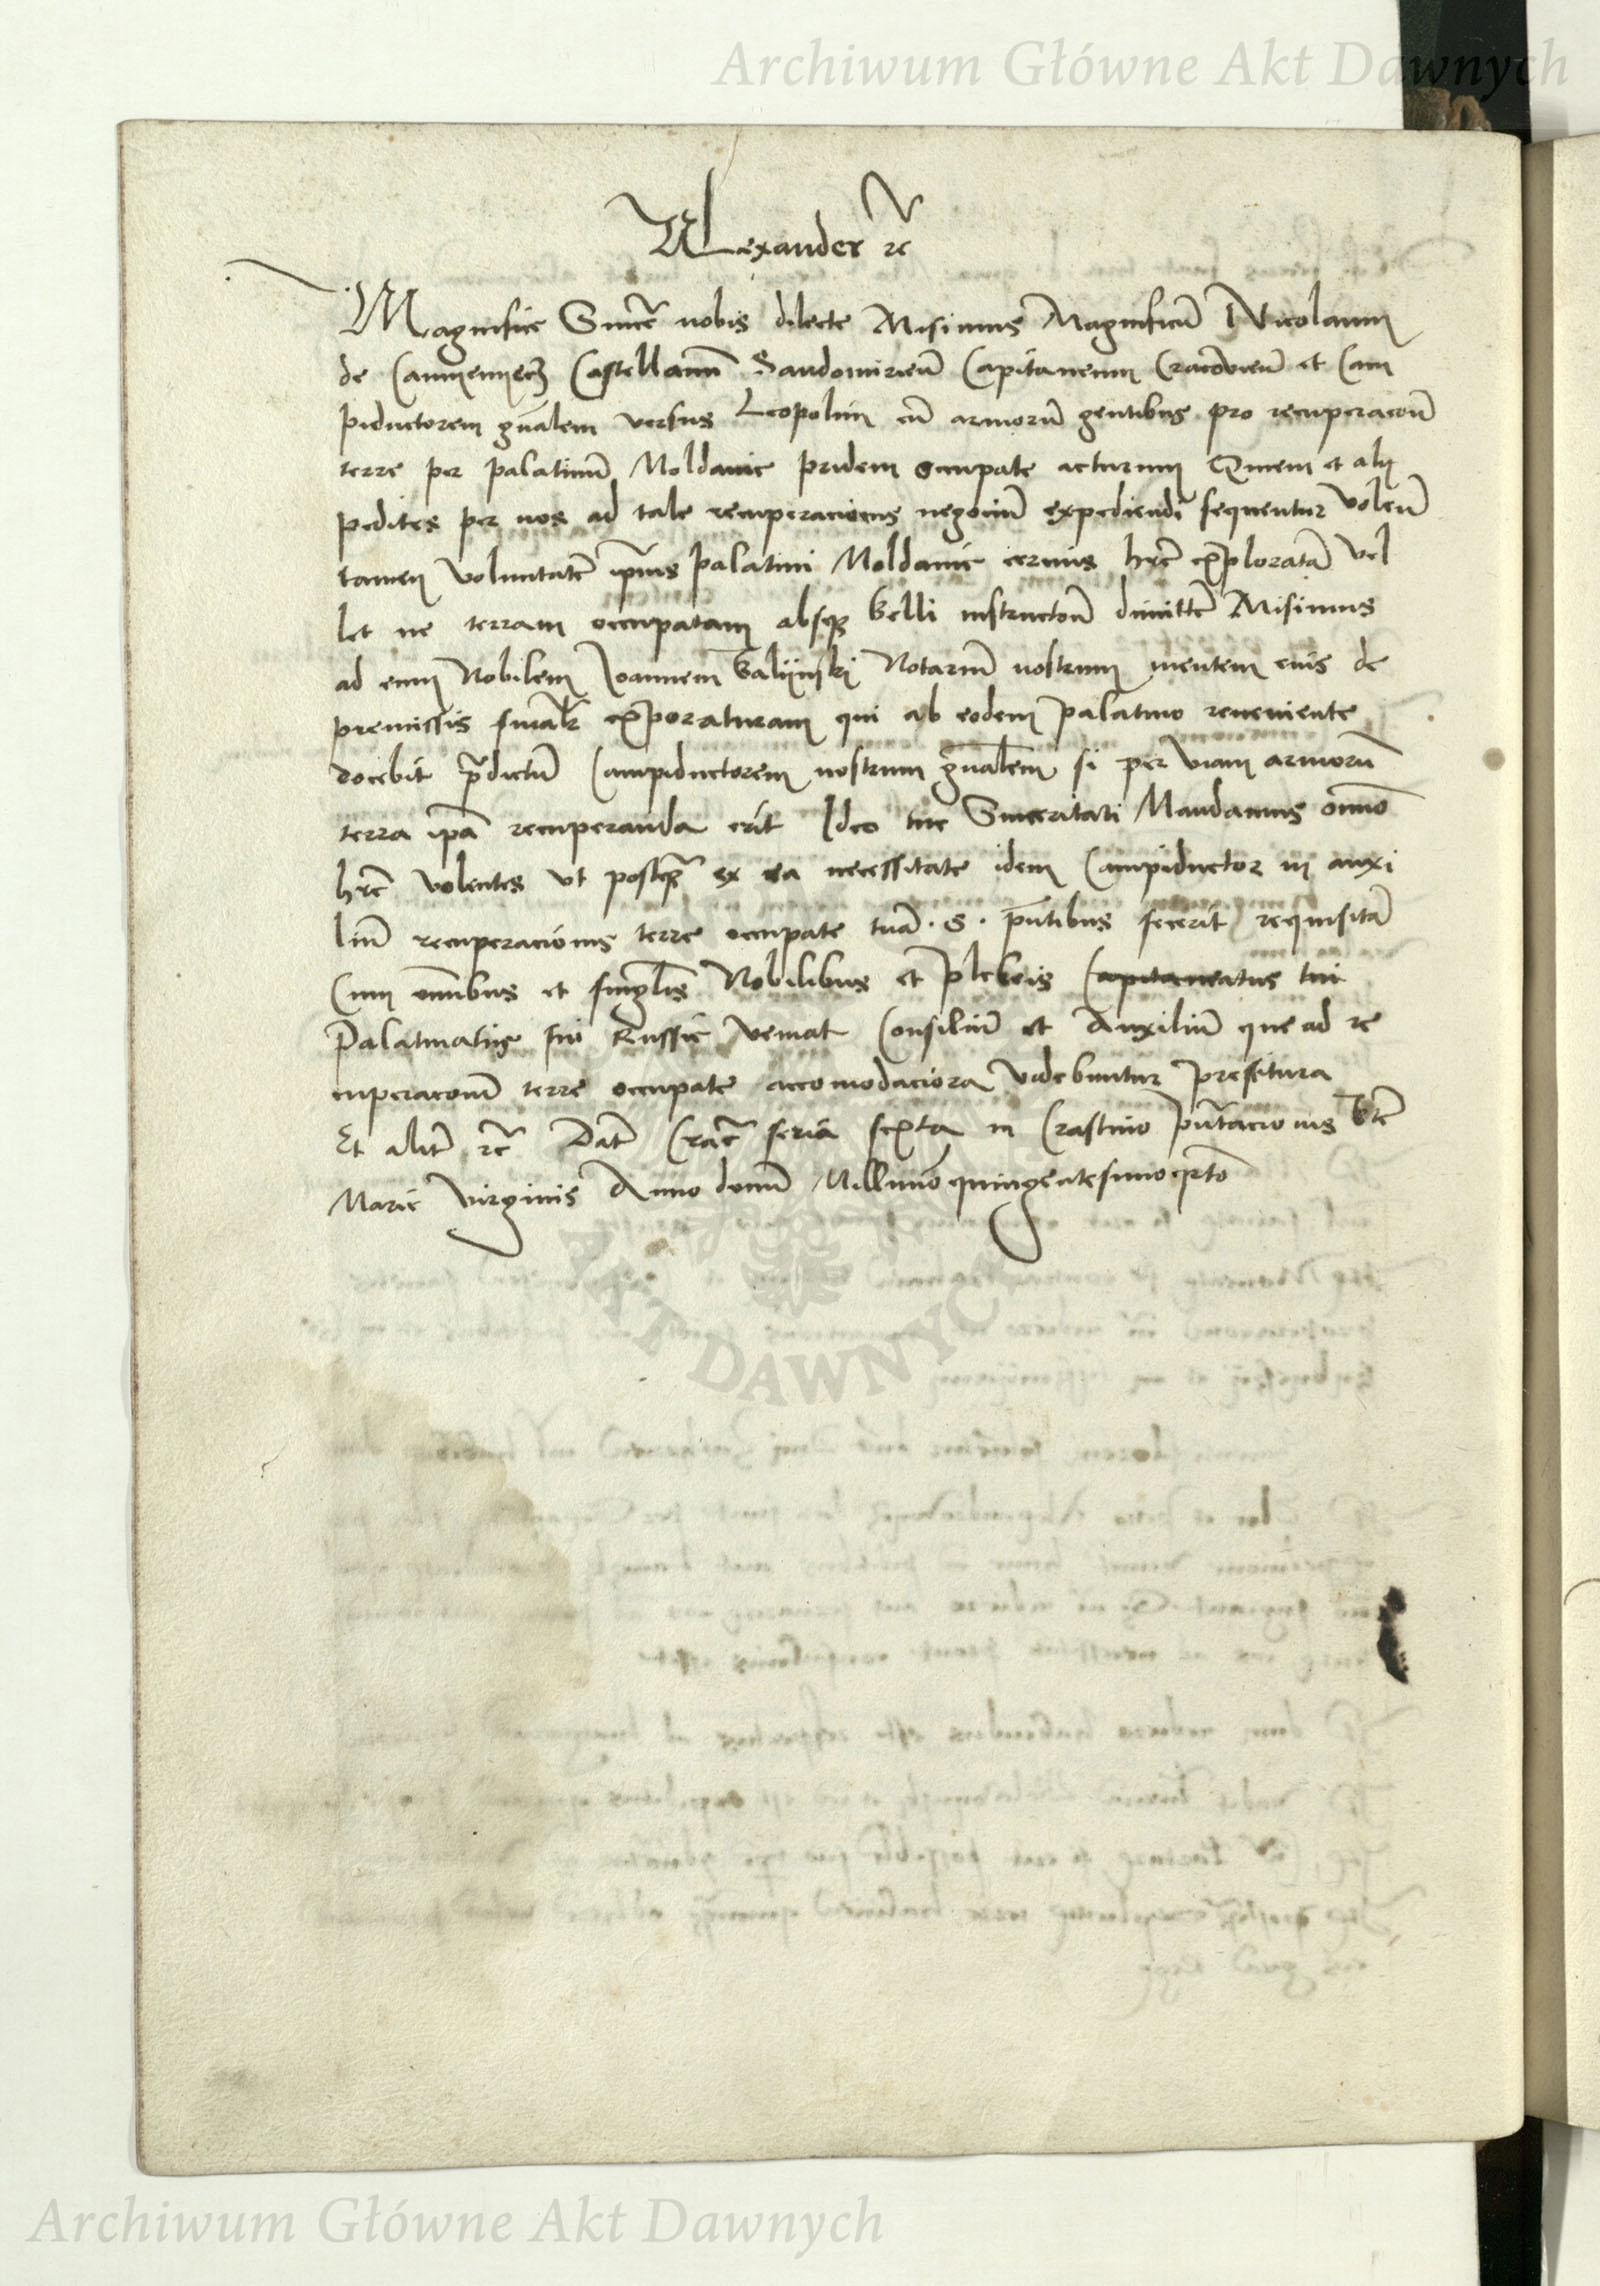 Archiwum Główne Akt Dawnych
Alexander rc
Magnifice Sincere nobis dilecte Misimus Magnificum Nicolaum
de Cammenyecz Castellanum Sandomirien Capitaneum Cracovien et Cam
piductorem gnalem versus Leopolim cum armorum gentibus pro recuperacion
terre per palatinum Moldavie pridem occupate acturum Quem et alij
pedites per nos ad tale recuperacionis negocium expediendi sequentur Volen
tamen voluntatem ipsius palatini Moldavie cercius habere exploratam vel
let ne terram occupatam absque belli instruction dimittere Misimus
ad eum Nobilem Joannem Galijnski Notarium nostrum mentem eius de
premissis finaliter exporaturam qui ab eodem palatino reveniente
docebit predictum Campiductorem nostrum gnalem si per viam armorum
terra ipsa recuperanda erit Ideo tue Sinceritati Mandamus omnino
habere volentes ut postquam ex ea necessitate idem Campiductor in auxi
lium recuperacionis terre occupate tuam .S. pntibus fecerit requisitam
Cum omnibus et singulis Nobilibus et plebeis Capitaneatus tui
Palatinatus sui Russie veniat Consilium et Auxilium que ad re
cuperacionem terre occupate accomodaciora videbuntur prestitura
Et aliter rc Dat Crac feria sexta in Crastino pntacionis bte
Marie Virginis Anno domini Millimo quingentesimoqrto
AKT DAWNYCH
Archiwum Główne Akt Dawnych